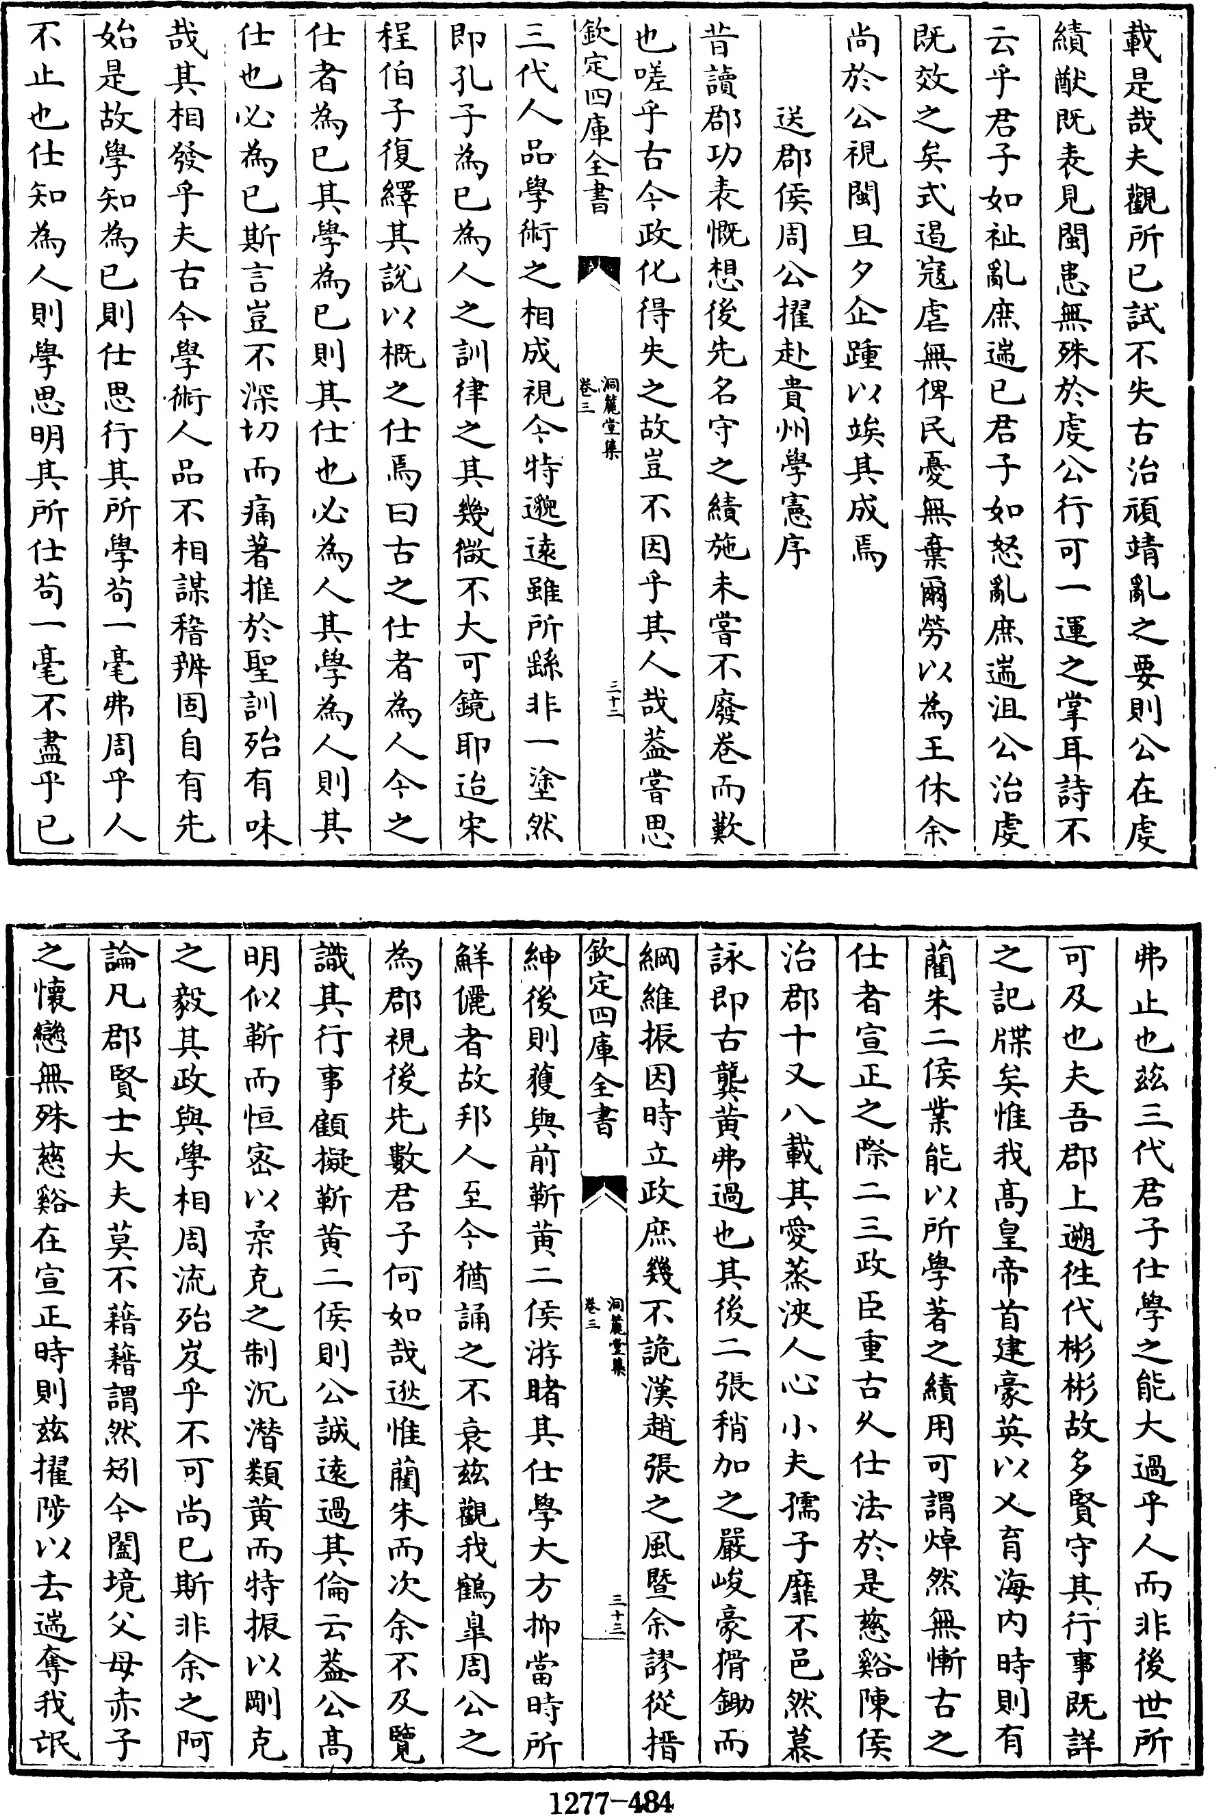 載是哉夫觀所已試不失古治頑靖亂之要則公在虔
績猷既表見閩患無殊於虔公行可一運之掌耳詩不
云乎君子如祉亂庶遄已君子如怒亂庶遄沮公治虔
既效之矣式遏寇虐無俾民憂無棄爾勞以為王休余
尚於公視閩旦夕企踵以竢其成焉
送郡侯周公擢赴貴州學憲序
昔讀郡功表慨想後先名守之績施未嘗不廢卷而歎
也嗟乎古今政化得失之故豈不因乎其人哉葢嘗思
欽定四庫全書
洞麓堂集
卷三
三十二
三代人品學術之相成視今特邈遠雖所繇非一塗然
即孔子為已為人之訓律之其幾微不大可鏡耶迨宋
程伯子復繹其說以概之仕焉曰古之仕者為人今之
仕者為已其學為已則其仕也必為人其學為人則其
仕也必為已斯言豈不深切而痛著推於聖訓殆有味
哉其相發乎夫古今學術人品不相謀稽辨固自有先
始是故學知為已則仕思行其所學苟一毫弗周乎人
不止也仕知為人則學思明其所仕苟一毫不盡乎已
弗止也兹三代君子仕學之能大過乎人而非後世所
可及也夫吾郡上遡徃代彬彬故多賢守其行事既詳
之記牒矣惟我髙皇帝首建豪英以乂育海内時則有
藺朱二侯業能以所學著之績用可謂焯然無慚古之
仕者宣正之際二三政臣重古久仕法於是慈谿陳侯
治郡十又八載其愛蒸浹人心小夫孺子靡不邑然慕
詠即古龔黄弗過也其後二張稍加之嚴峻豪猾鋤而
綱維振因時立政庶幾不詭漢趙張之風暨余謬從搢
欽定四庫全書
洞麓堂集
卷三
三十三
紳後則獲與前靳黄二侯游睹其仕學大方抑當時所
鮮儷者故邦人至今猶誦之不衰兹觀我鶴臯周公之
為郡視後先數君子何如哉逖惟藺朱而次余不及覽
識其行事顧擬靳黄二侯則公誠遠過其倫云葢公髙
明似靳而恒宻以柔克之制沉潜類黄而特振以剛克
之毅其政與學相周流殆岌乎不可尚已斯非余之阿
論凡郡賢士大夫莫不藉藉謂然矧今闔境父母赤子
之懷戀無殊慈谿在宣正時則兹擢陟以去遄奪我氓
1277-484